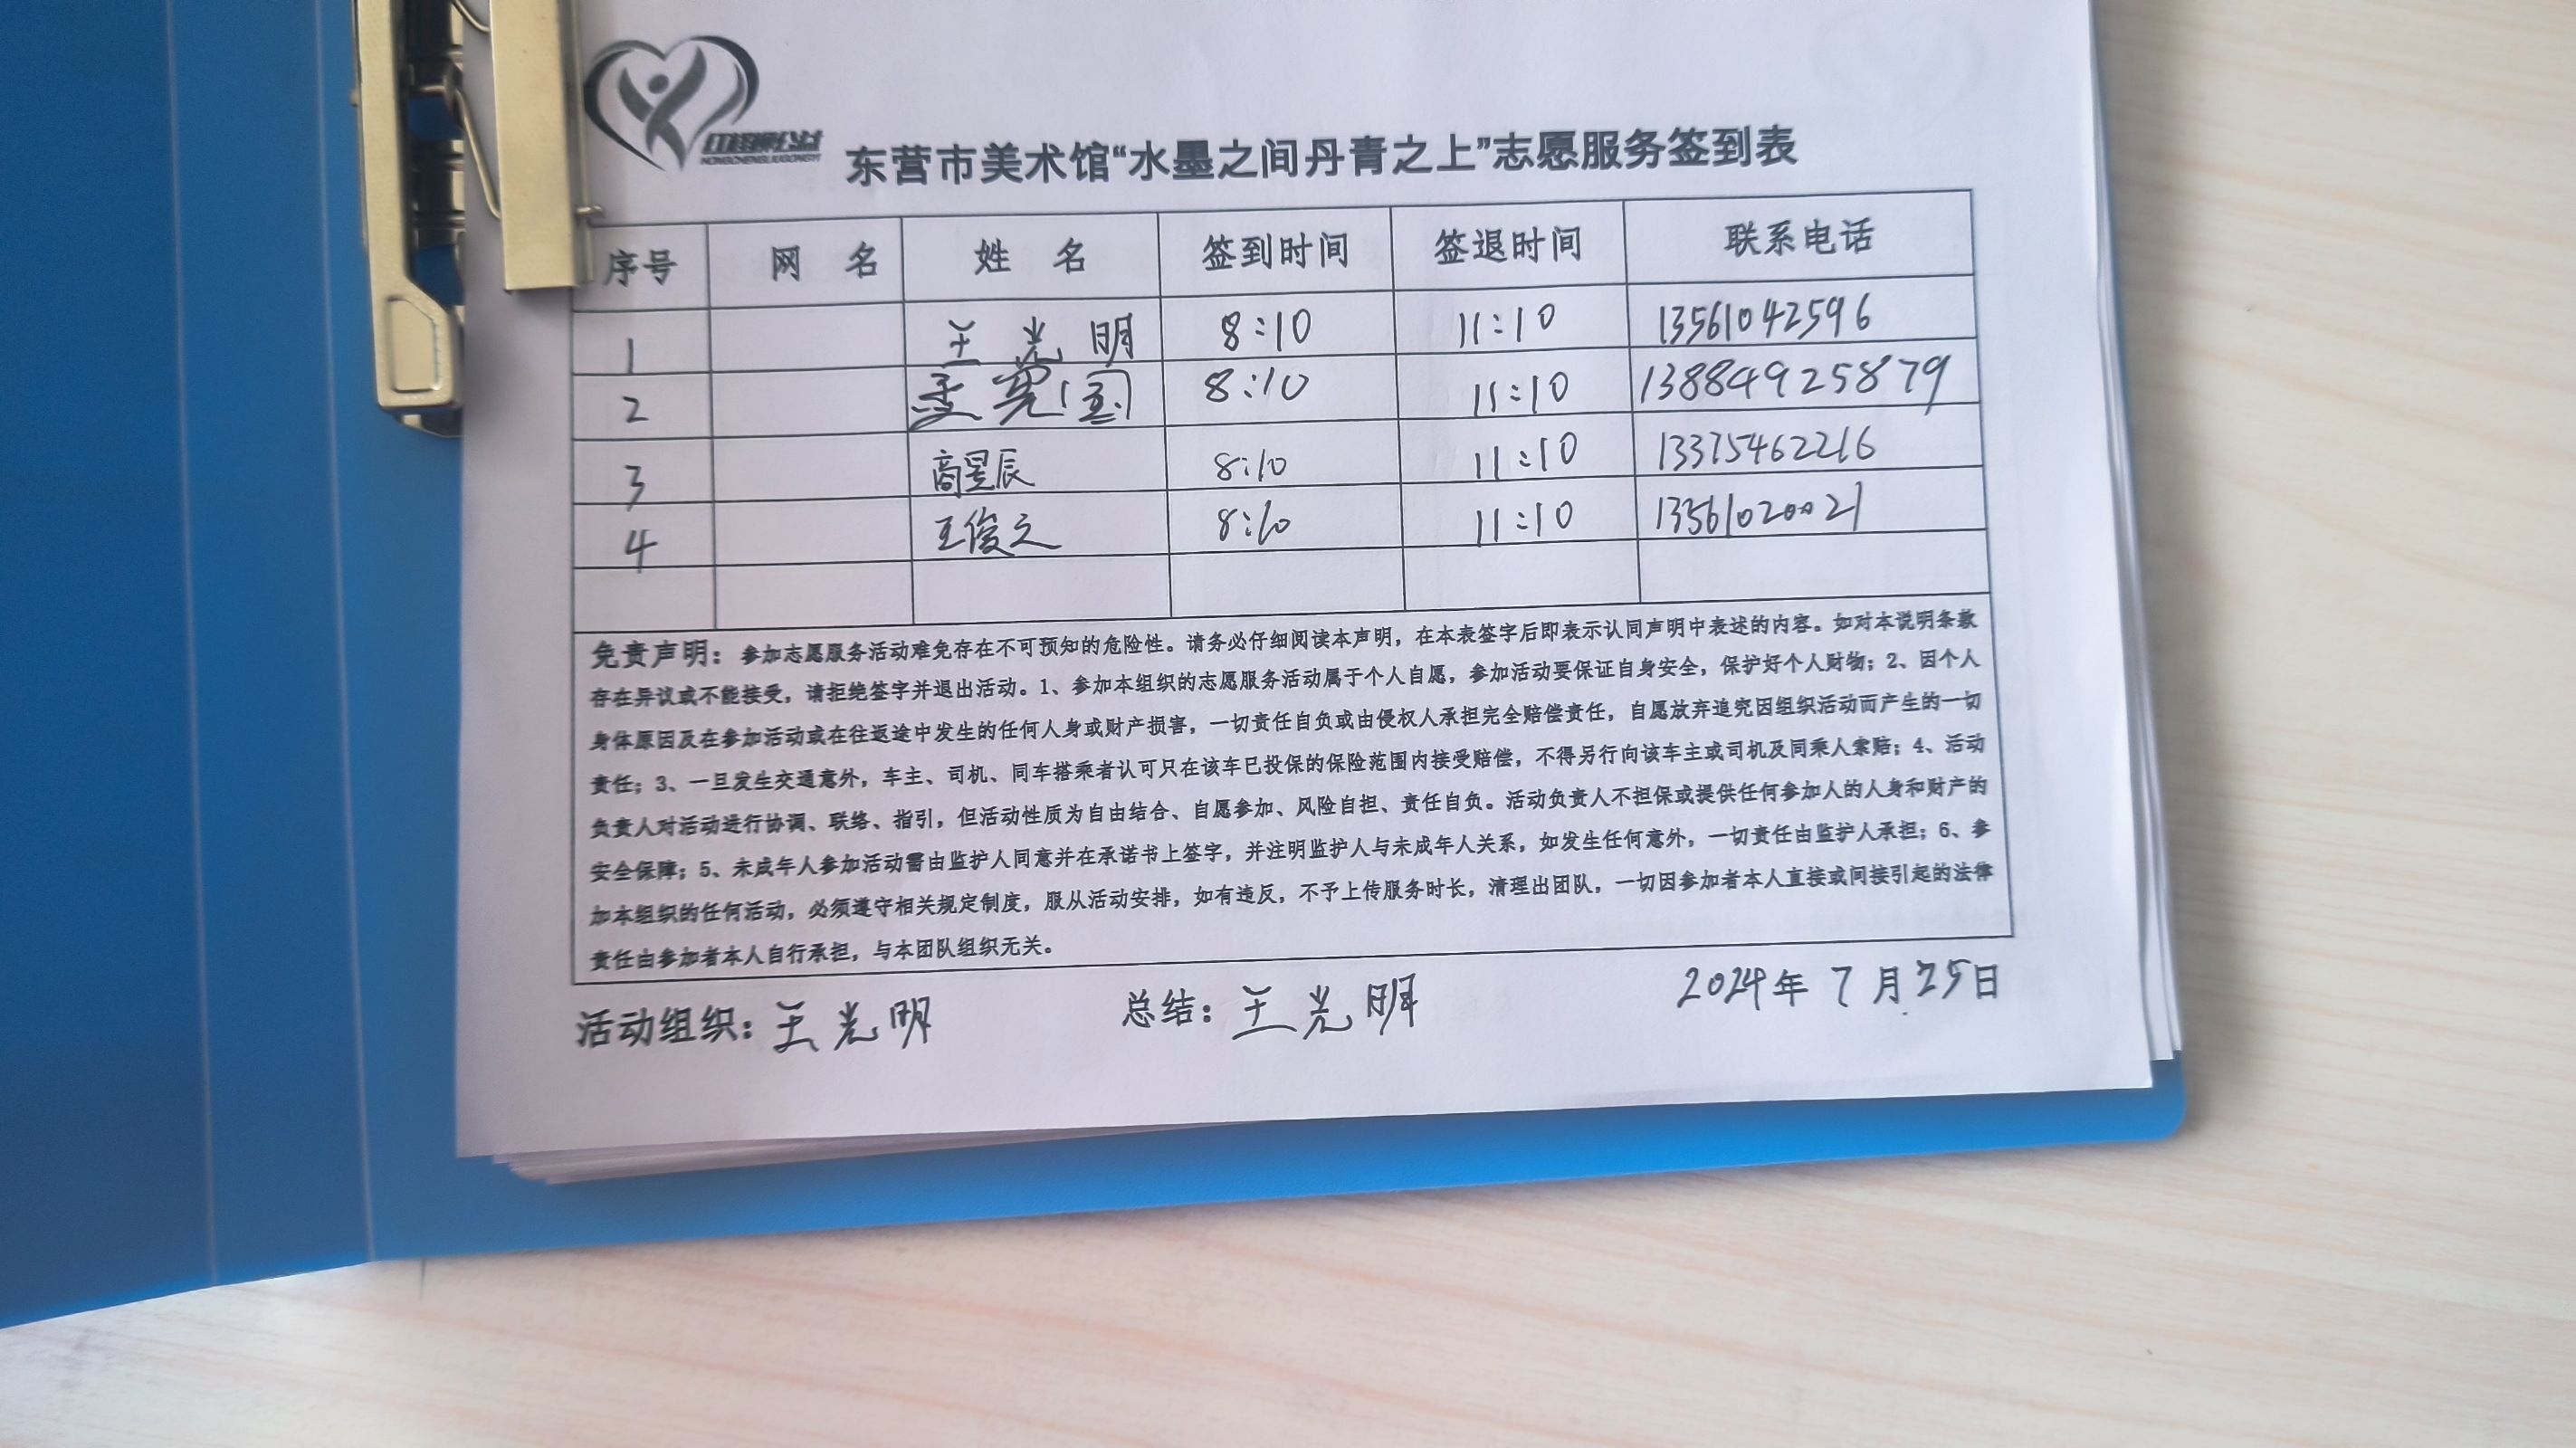 红柽柳公益
HONGCHENGLIUGONGYI
东营市美术馆“水墨之间丹青之上”志愿服务签到表
序号 网 名 姓 名 签到时间 签退时间 联系电话
1 王光明 8:10 11:10 13561042596
2 8:10 11:10 13884925879
3 商昱辰 8:10 11:10 13375462216
4 王俊之 8:10 11:10 13561020021
免责声明：参加志愿服务活动难免存在不可预知的危险性。请务必仔细阅读本声明，在本表签字后即表示认同声明中表述的内容。如对本说明条款
存在异议或不能接受，请拒绝签字并退出活动。1、参加本组织的志愿服务活动属于个人自愿，参加活动要保证自身安全，保护好个人财物；2、因个人
身体原因及在参加活动或在往返途中发生的任何人身或财产损害，一切责任自负或由侵权人承担完全赔偿责任，自愿放弃追究因组织活动而产生的一切
责任；3、一旦发生交通意外，车主、司机、同车搭乘者认可只在该车已投保的保险范围内接受赔偿，不得另行向该车主或司机及同乘人索赔；4、活动
负责人对活动进行协调、联络、指引，但活动性质为自由结合、自愿参加、风险自担、责任自负。活动负责人不担保或提供任何参加人的人身和财产的
安全保障；5、未成年人参加活动需由监护人同意并在承诺书上签字，并注明监护人与未成年人关系，如发生任何意外，一切责任由监护人承担；6、参
加本组织的任何活动，必须遵守相关规定制度，服从活动安排，如有违反，不予上传服务时长，清理出团队，一切因参加者本人直接或间接引起的法律
责任由参加者本人自行承担，与本团队组织无关。
活动组织：王光明 总结：王光明 2024年7月25日